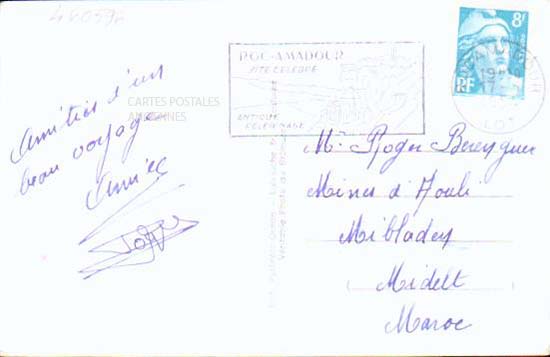 480598
Amitiés d'un
beau voyage
Annie
CARTES POSTALES
ANCIENNES
ROC-AMADOUR
SITE CELEBRE
ANTIQUE
PELERINAGE
8F
RF
19
LOT
Mr Roger Berenguer
Mines d'Aouli
Mibladen
Midelt
Maroc